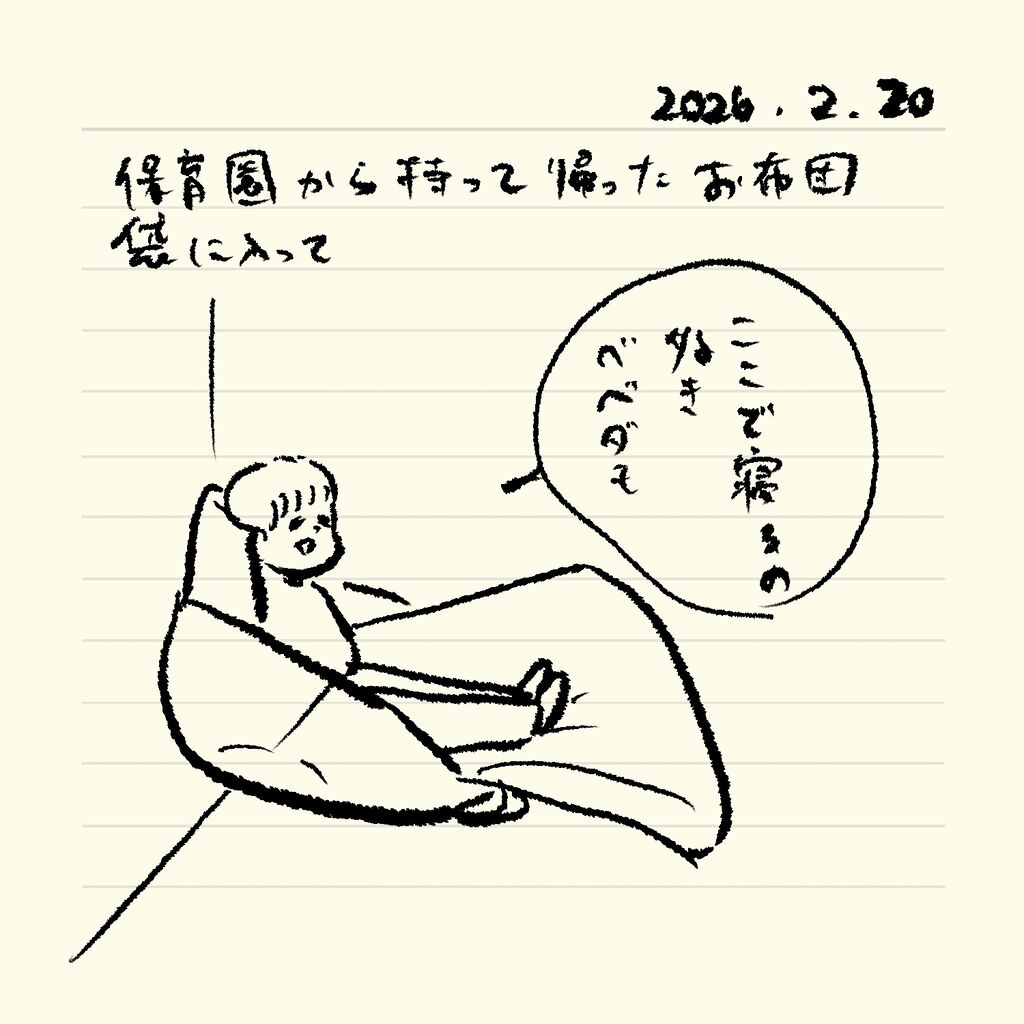 2026.2.20
保育園から持って帰ったお布団
袋に入って
ここで寝るの
好き
ベベダモ